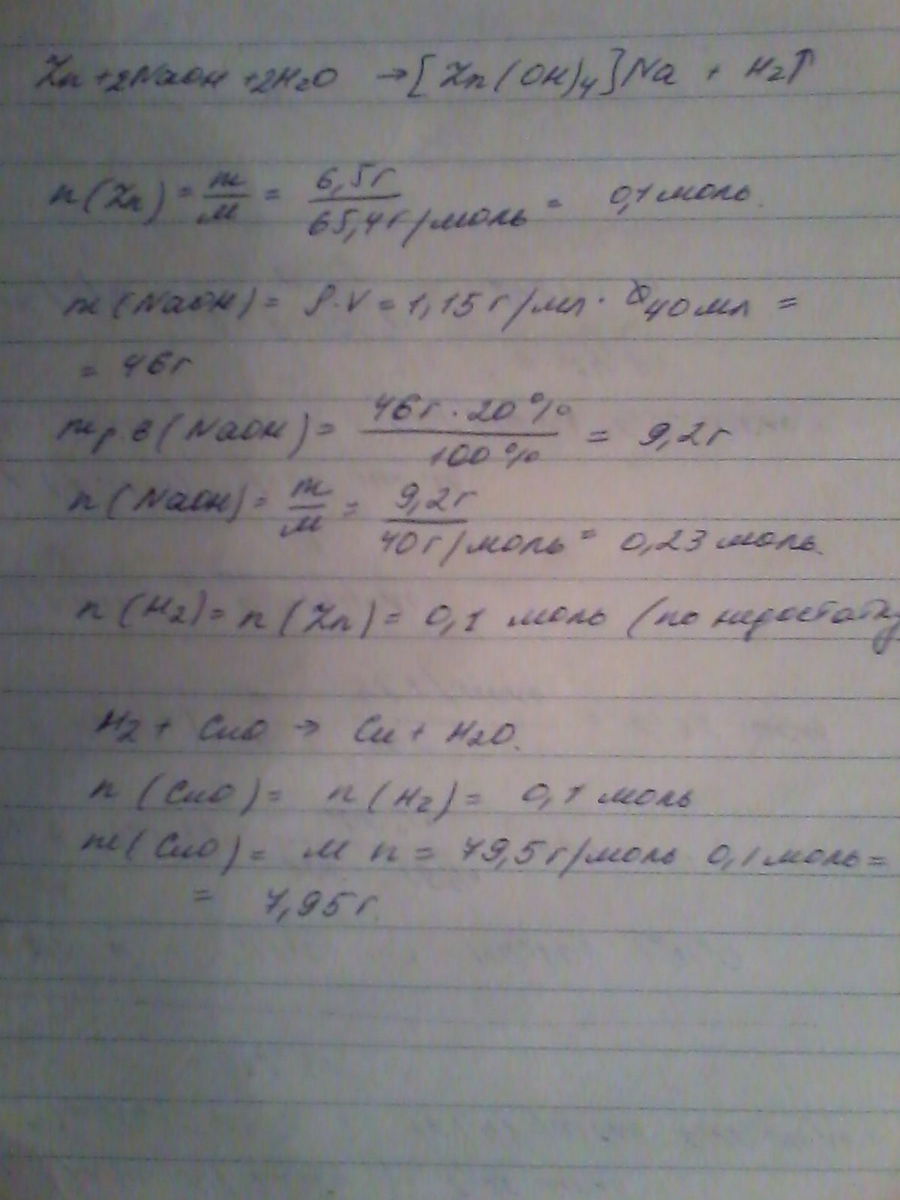 Zn + 2NaOH + 2H₂O → [Zn(OH)₄]Na + H₂↑
n(Zn) = m/M = 6,5г/65,4г/моль = 0,1 моль.
m(NaOH) = ρ·V = 1,15 г/мл · 40 мл =
= 46г
m р.в(NaOH) = 46г·20%/100% = 9,2г
n(NaOH) = m/M = 9,2г/40г/моль = 0,23 моль.
n(H₂) = n(Zn) = 0,1 моль (по недостатку
H₂ + CuO → Cu + H₂O.
n(CuO) = n(H₂) = 0,1 моль
m(CuO) = M n = 79,5г/моль 0,1 моль =
= 7,95г.